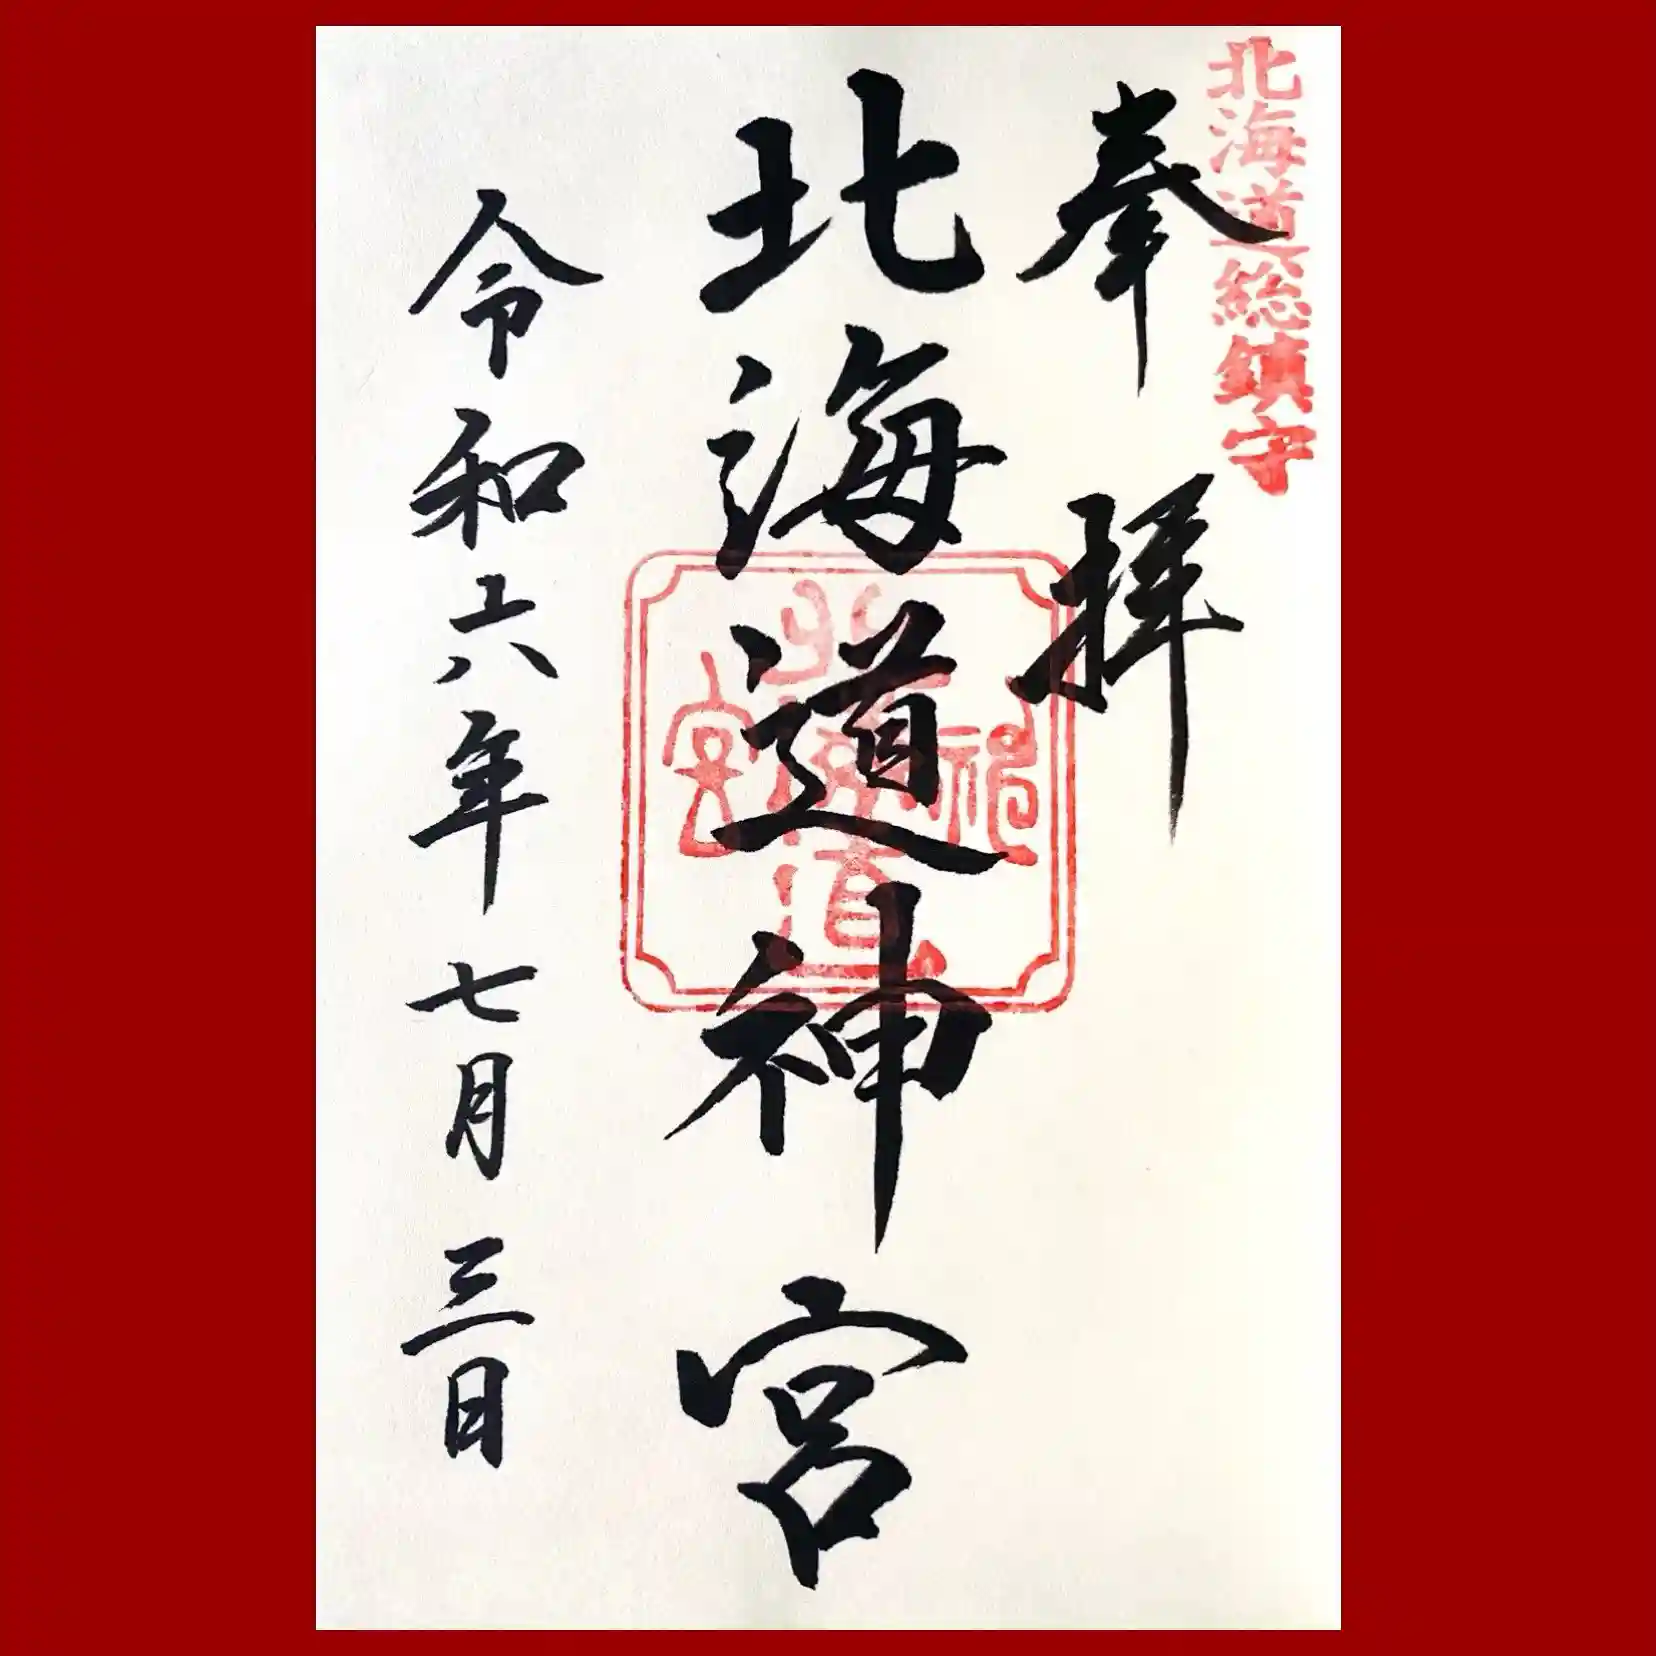 北海道総鎮守
奉拝
北海道神宮
令和六年七月三日